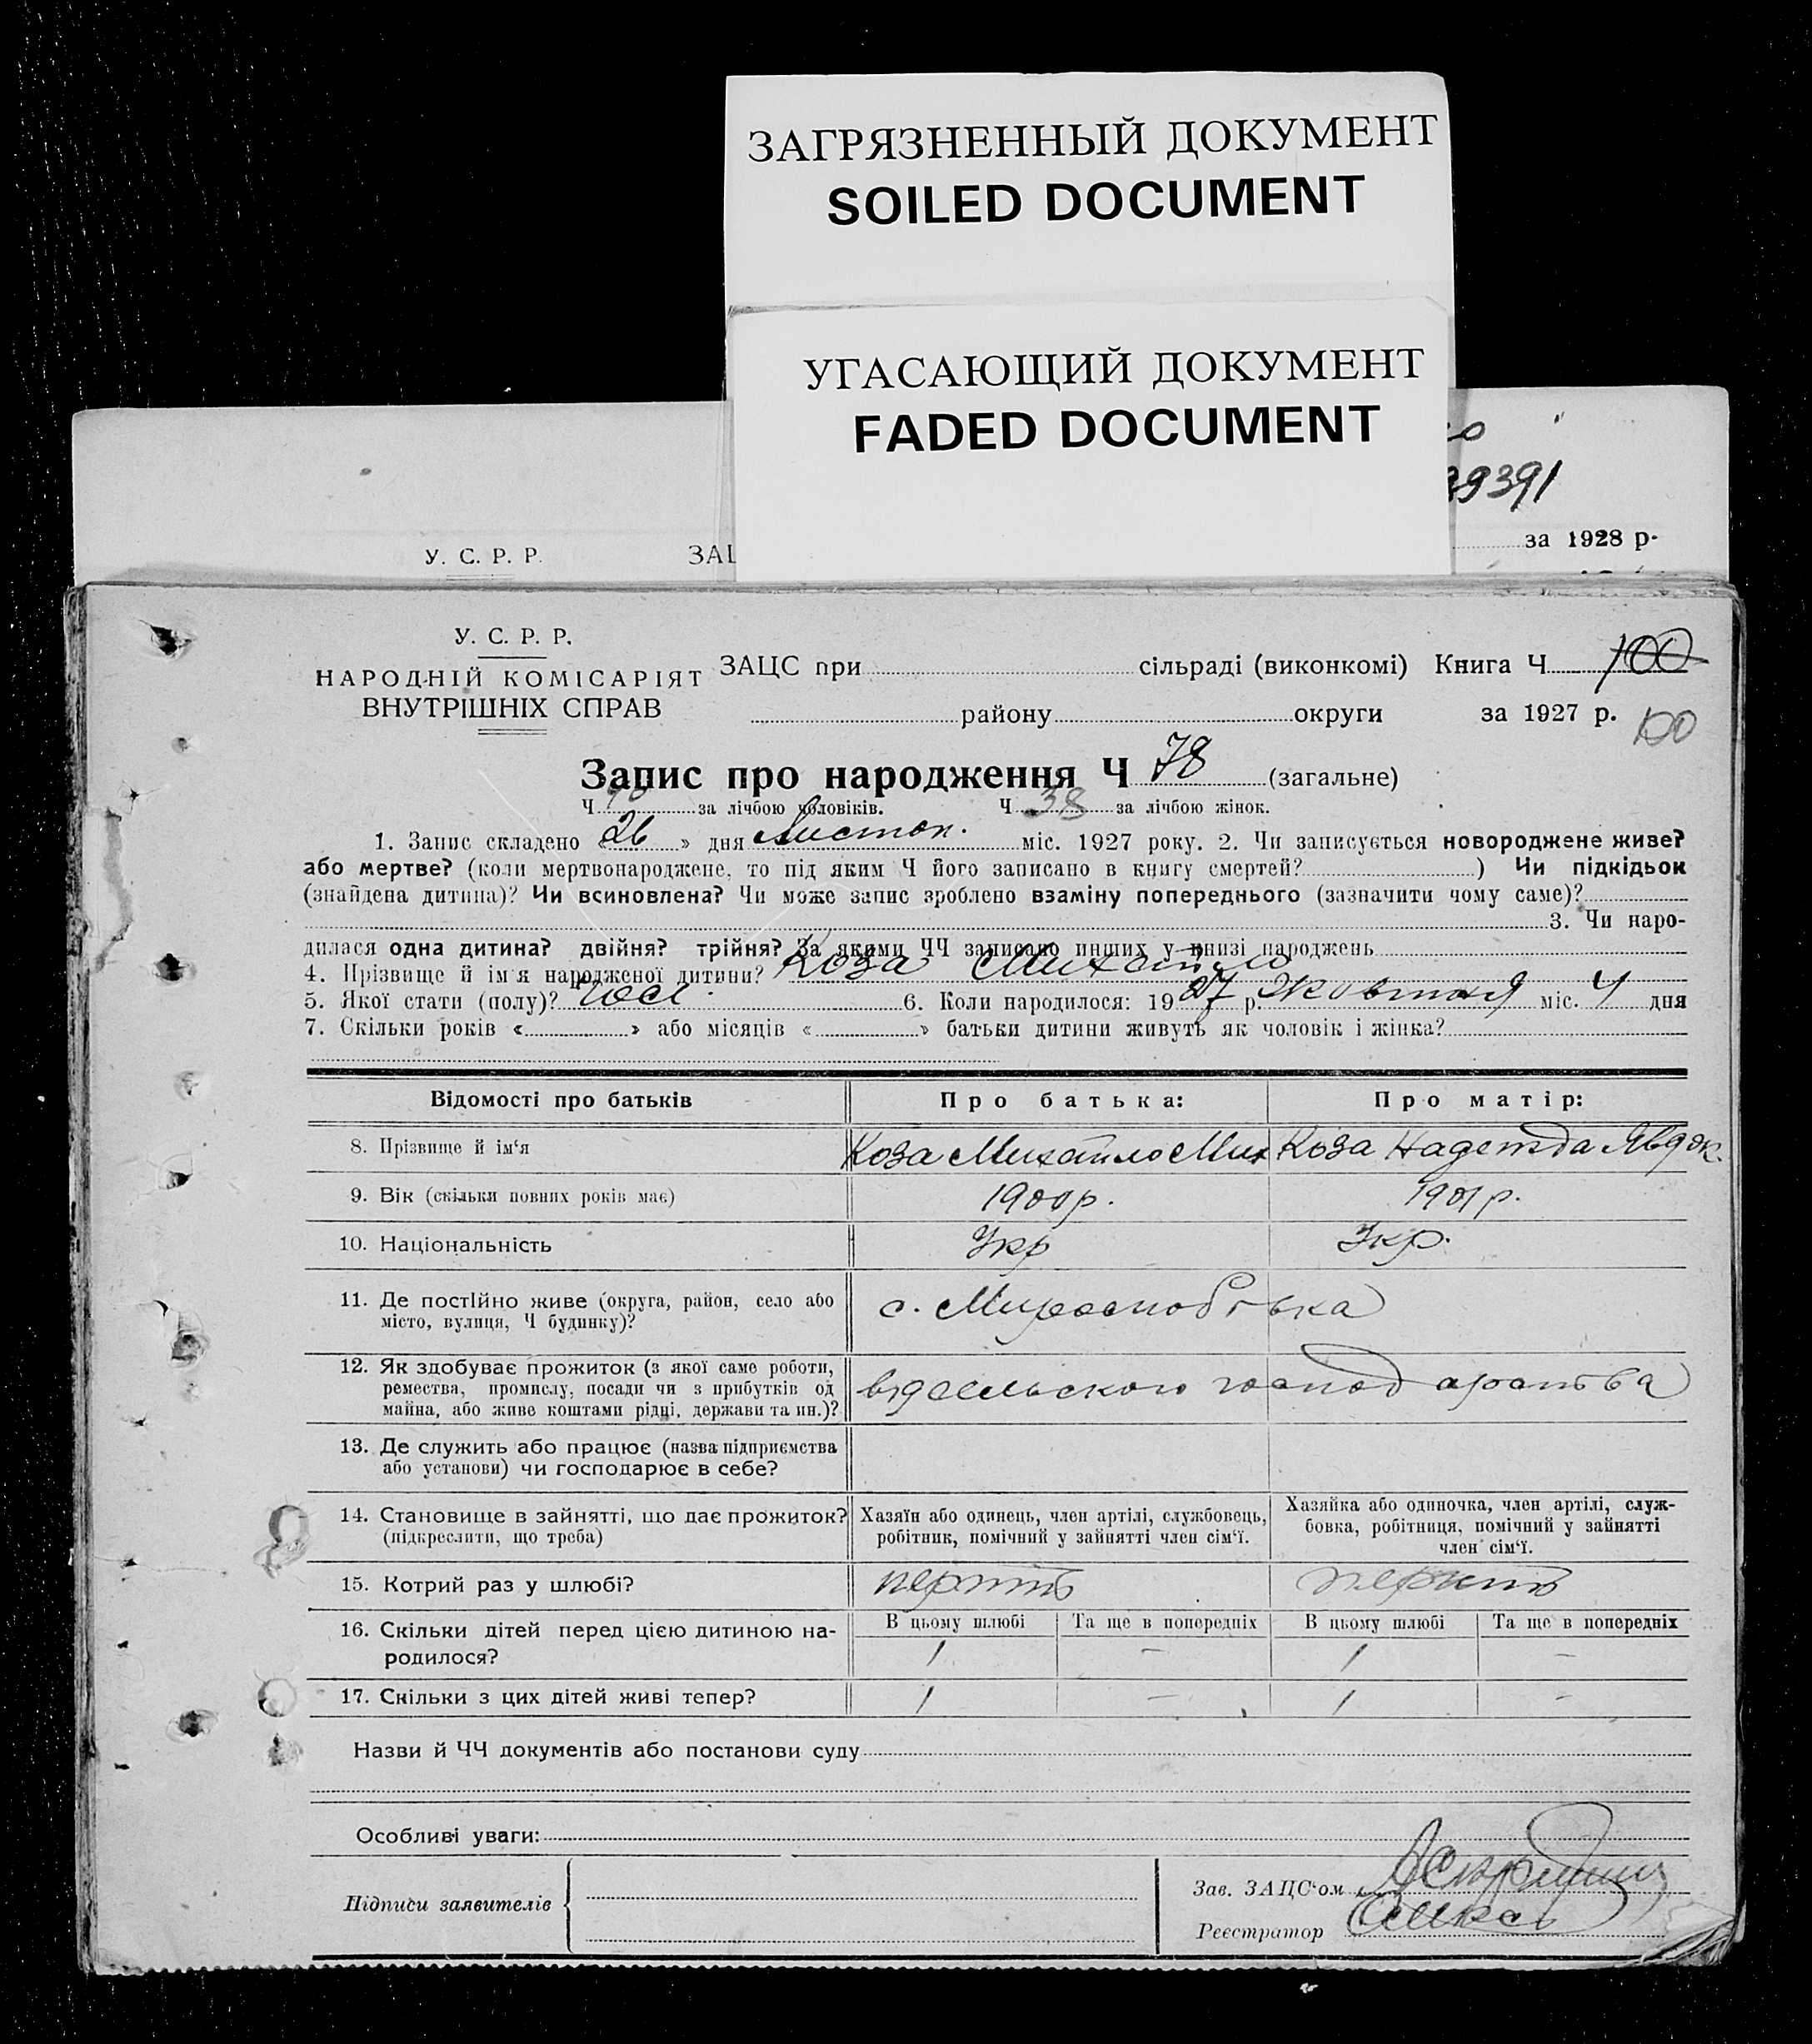 ЗАГРЯЗНЕННЫЙ ДОКУМЕНТ
SOILED DOCUMENT
УГАСАЮЩИЙ ДОКУМЕНТ
FADED DOCUMENT
39391
У. С. Р. Р. за 1928 р.
У. С. Р. Р.
НАРОДНІЙ КОМІСАРІЯТ
ВНУТРІШНІХ СПРАВ
ЗАЦС при сільраді (виконкомі) Книга Ч 100
району округи за 1927 р. 100
Запис про народження Ч 78 (загальне)
Ч за лічбою чоловіків. Ч 38 за лічбою жінок.
1. Запис складено « 26 » дня Листоп. міс. 1927 року. 2. Чи записується новороджене живе?
або мертве? (коли мертвонароджене, то під яким Ч його записано в книгу смертей? ) Чи підкідьок
(знайдена дитина)? Чи всиновлена? Чи може запис зроблено взаміну попереднього (зазначити чому саме)?
3. Чи наро-
дилася одна дитина? двійня? трійня? За якими ЧЧ записано инших у книзі народжень
4. Прізвище й ім'я народженої дитини? Коза Михайло
5. Якої стати (полу)? чол. 6. Коли народилося: 1927 р. Жовтня міс. 4 дня
7. Скільки років « » або місяців « » батьки дитини живуть як чоловік і жінка?
Відомості про батьків Про батька: Про матір:
8. Прізвище й ім'я Коза Михайло Мих Коза Надежда Явдок.
9. Вік (скільки повних років має) 1900 р. 1901 р.
10. Національність Укр Укр.
11. Де постійно живе (округа, район, село або
місто, вулиця, Ч будинку)?
с.
12. Як здобуває прожиток (з якої саме роботи,
ремества, промислу, посади чи з прибутків од
майна, або живе коштами рідні, держави та ин.)?
від сельского господарства
13. Де служить або працює (назва підприємства
або установи) чи господарює в себе?
14. Становище в зайнятті, що дає прожиток?
(підкреслити, що треба)
Хазяїн або одинець, член артілі, службовець,
робітник, помічний у зайнятті член сім'ї.
Хазяйка або одиночка, член артілі, служ-
бовка, робітниця, помічний у зайнятті
член сім'ї.
15. Котрий раз у шлюбі?
В цьому шлюбі Та ще в попередніх В цьому шлюбі Та ще в попередніх
16. Скільки дітей перед цією дитиною на-
родилося?
1 — 1 —
17. Скільки з цих дітей живі тепер? 1 — 1 —
Назви й ЧЧ документів або постанови суду
Особливі уваги:
Підписи заявителів
Зав. ЗАЦС'ом
Реєстратор